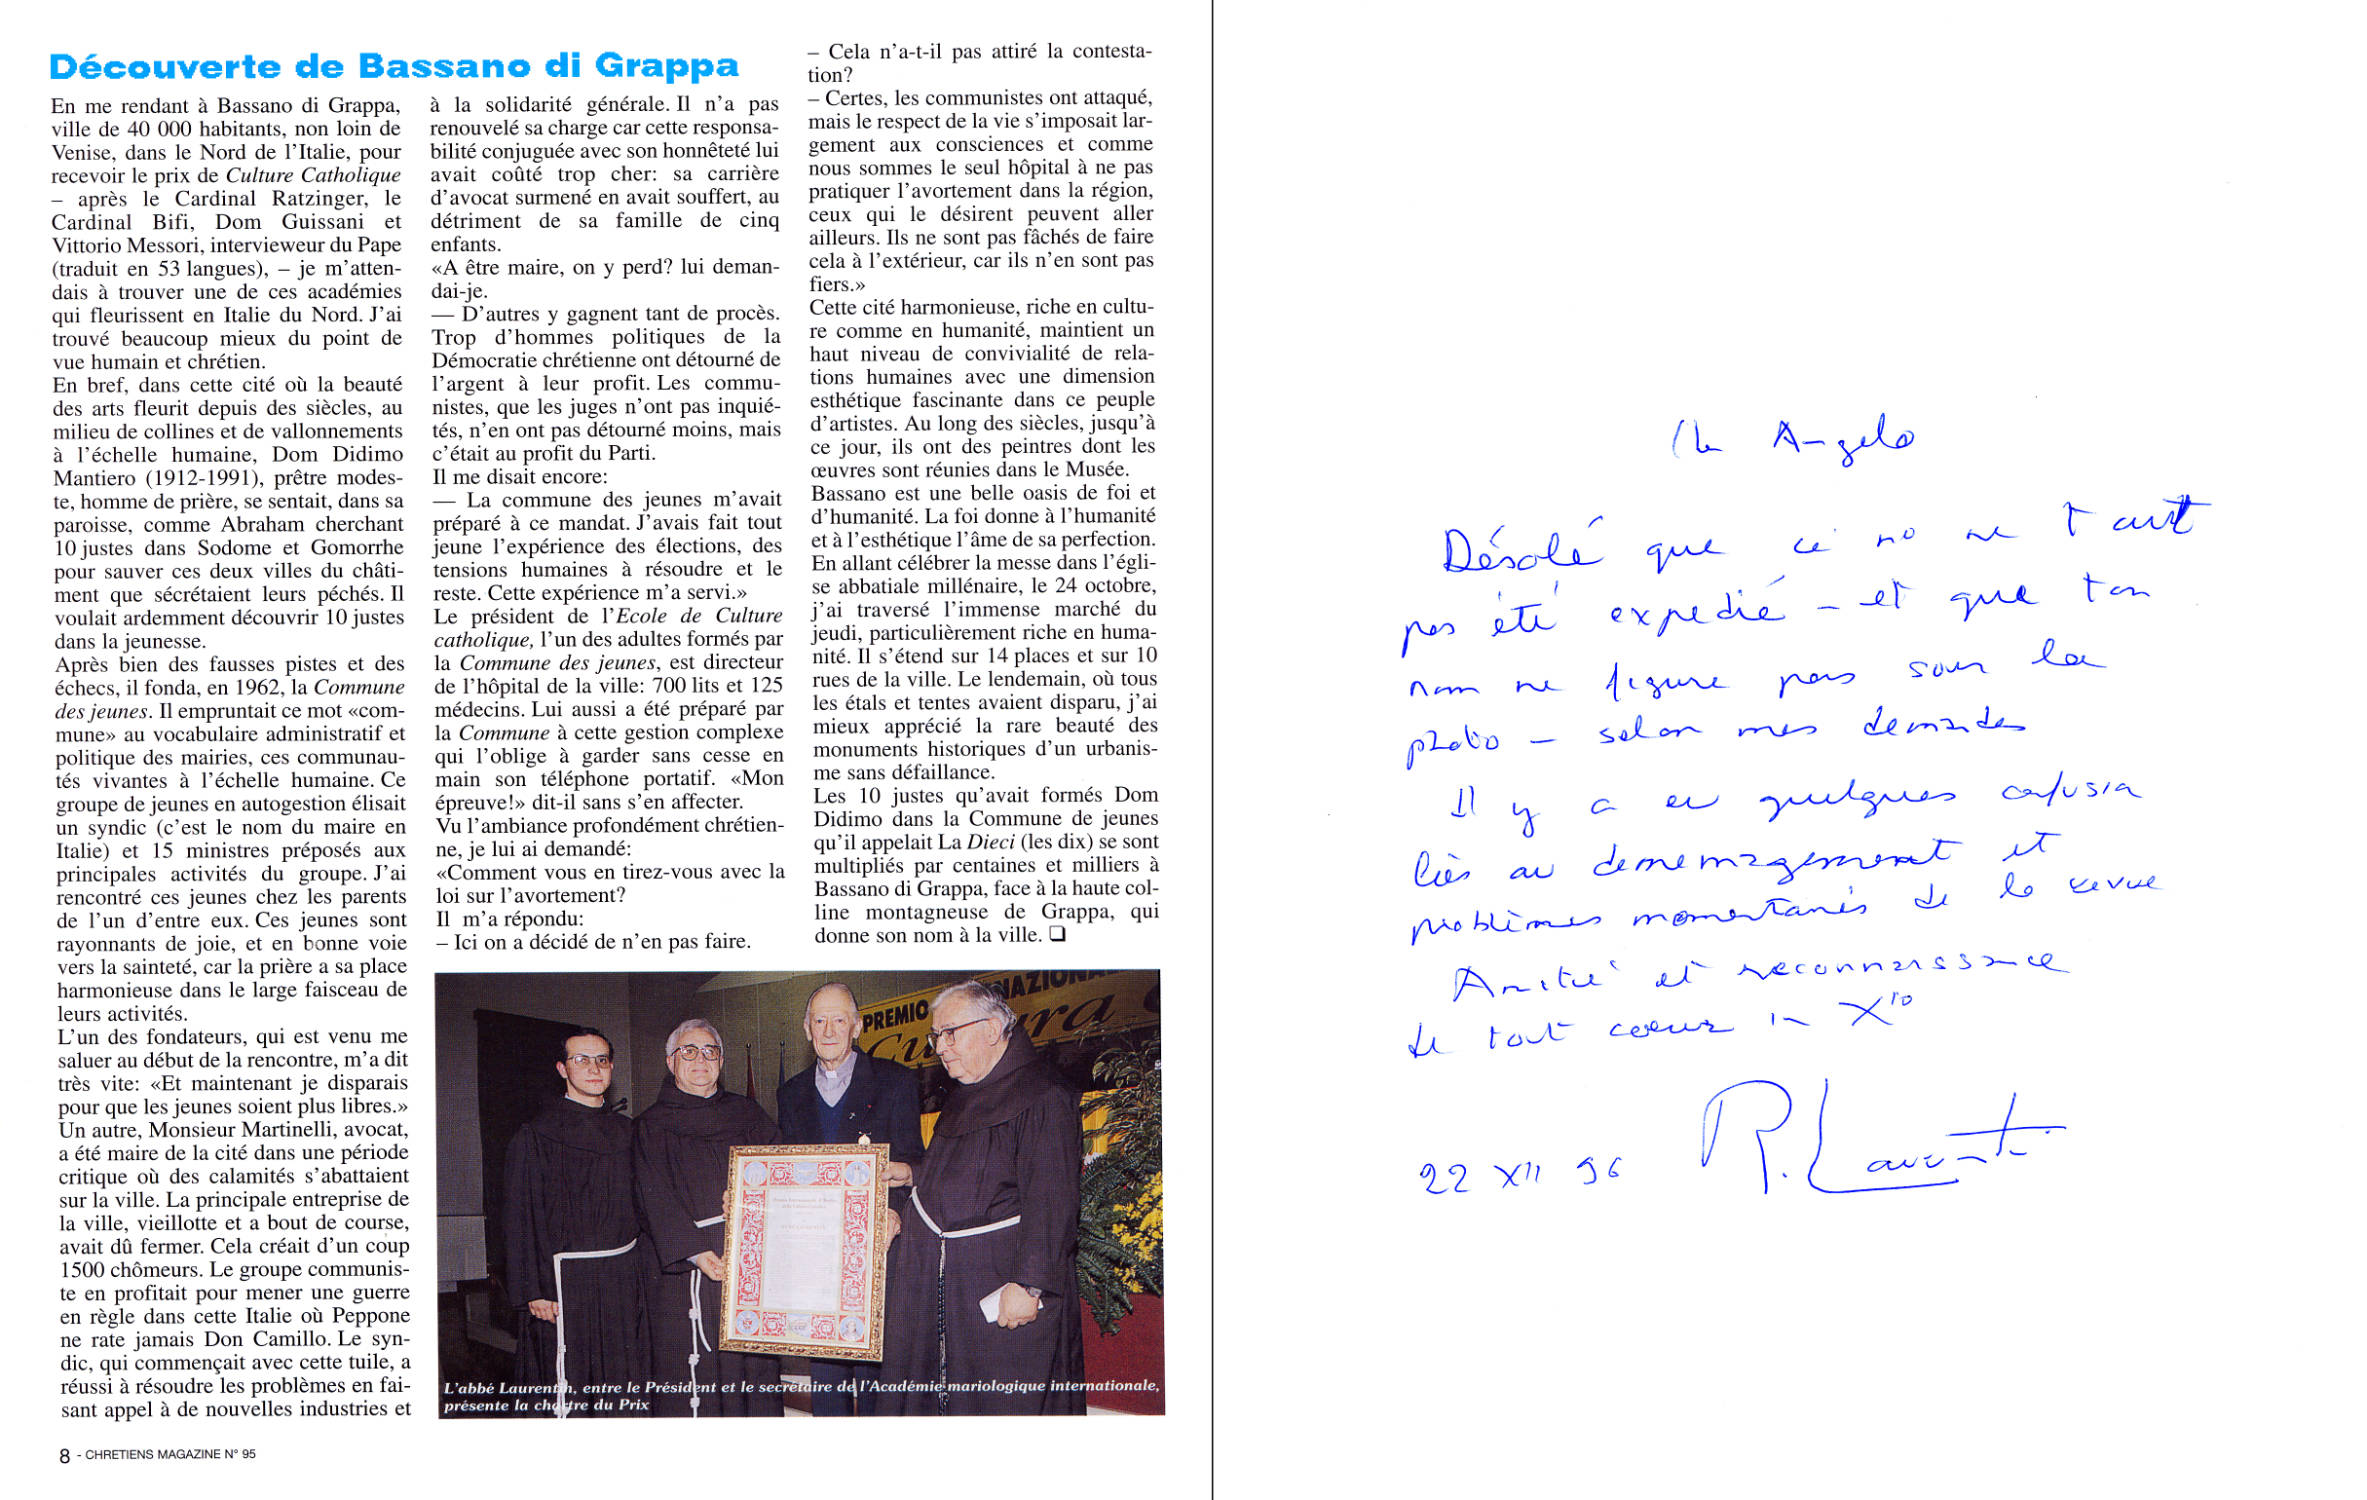 Découverte de Bassano di Grappa
En me rendant à Bassano di Grappa,
ville de 40 000 habitants, non loin de
Venise, dans le Nord de l'Italie, pour
recevoir le prix de Culture Catholique
– après le Cardinal Ratzinger, le
Cardinal Bifi, Dom Guissani et
Vittorio Messori, intervieweur du Pape
(traduit en 53 langues), – je m'atten-
dais à trouver une de ces académies
qui fleurissent en Italie du Nord. J'ai
trouvé beaucoup mieux du point de
vue humain et chrétien.
En bref, dans cette cité où la beauté
des arts fleurit depuis des siècles, au
milieu de collines et de vallonnements
à l'échelle humaine, Dom Didimo
Mantiero (1912-1991), prêtre modes-
te, homme de prière, se sentait, dans sa
paroisse, comme Abraham cherchant
10 justes dans Sodome et Gomorrhe
pour sauver ces deux villes du châti-
ment que sécrétaient leurs péchés. Il
voulait ardemment découvrir 10 justes
dans la jeunesse.
Après bien des fausses pistes et des
échecs, il fonda, en 1962, la Commune
des jeunes. Il empruntait ce mot «com-
mune» au vocabulaire administratif et
politique des mairies, ces communau-
tés vivantes à l'échelle humaine. Ce
groupe de jeunes en autogestion élisait
un syndic (c'est le nom du maire en
Italie) et 15 ministres préposés aux
principales activités du groupe. J'ai
rencontré ces jeunes chez les parents
de l'un d'entre eux. Ces jeunes sont
rayonnants de joie, et en bonne voie
vers la sainteté, car la prière a sa place
harmonieuse dans le large faisceau de
leurs activités.
L'un des fondateurs, qui est venu me
saluer au début de la rencontre, m'a dit
très vite: «Et maintenant je disparais
pour que les jeunes soient plus libres.»
Un autre, Monsieur Martinelli, avocat,
a été maire de la cité dans une période
critique où des calamités s'abattaient
sur la ville. La principale entreprise de
la ville, vieillotte et a bout de course,
avait dû fermer. Cela créait d'un coup
1500 chômeurs. Le groupe communis-
te en profitait pour mener une guerre
en règle dans cette Italie où Peppone
ne rate jamais Don Camillo. Le syn-
dic, qui commençait avec cette tuile, a
réussi à résoudre les problèmes en fai-
sant appel à de nouvelles industries et
à la solidarité générale. Il n'a pas
renouvelé sa charge car cette responsa-
bilité conjuguée avec son honnêteté lui
avait coûté trop cher: sa carrière
d'avocat surmené en avait souffert, au
détriment de sa famille de cinq
enfants.
«A être maire, on y perd? lui deman-
dai-je.
— D'autres y gagnent tant de procès.
Trop d'hommes politiques de la
Démocratie chrétienne ont détourné de
l'argent à leur profit. Les commu-
nistes, que les juges n'ont pas inquié-
tés, n'en ont pas détourné moins, mais
c'était au profit du Parti.
Il me disait encore:
— La commune des jeunes m'avait
préparé à ce mandat. J'avais fait tout
jeune l'expérience des élections, des
tensions humaines à résoudre et le
reste. Cette expérience m'a servi.»
Le président de l'Ecole de Culture
catholique, l'un des adultes formés par
la Commune des jeunes, est directeur
de l'hôpital de la ville: 700 lits et 125
médecins. Lui aussi a été préparé par
la Commune à cette gestion complexe
qui l'oblige à garder sans cesse en
main son téléphone portatif. «Mon
épreuve!» dit-il sans s'en affecter.
Vu l'ambiance profondément chrétien-
ne, je lui ai demandé:
«Comment vous en tirez-vous avec la
loi sur l'avortement?
Il m'a répondu:
– Ici on a décidé de n'en pas faire.
– Cela n'a-t-il pas attiré la contesta-
tion?
– Certes, les communistes ont attaqué,
mais le respect de la vie s'imposait lar-
gement aux consciences et comme
nous sommes le seul hôpital à ne pas
pratiquer l'avortement dans la région,
ceux qui le désirent peuvent aller
ailleurs. Ils ne sont pas fâchés de faire
cela à l'extérieur, car ils n'en sont pas
fiers.»
Cette cité harmonieuse, riche en cultu-
re comme en humanité, maintient un
haut niveau de convivialité de rela-
tions humaines avec une dimension
esthétique fascinante dans ce peuple
d'artistes. Au long des siècles, jusqu'à
ce jour, ils ont des peintres dont les
œuvres sont réunies dans le Musée.
Bassano est une belle oasis de foi et
d'humanité. La foi donne à l'humanité
et à l'esthétique l'âme de sa perfection.
En allant célébrer la messe dans l'égli-
se abbatiale millénaire, le 24 octobre,
j'ai traversé l'immense marché du
jeudi, particulièrement riche en huma-
nité. Il s'étend sur 14 places et sur 10
rues de la ville. Le lendemain, où tous
les étals et tentes avaient disparu, j'ai
mieux apprécié la rare beauté des
monuments historiques d'un urbanis-
me sans défaillance.
Les 10 justes qu'avait formés Dom
Didimo dans la Commune de jeunes
qu'il appelait La Dieci (les dix) se sont
multipliés par centaines et milliers à
Bassano di Grappa, face à la haute col-
line montagneuse de Grappa, qui
donne son nom à la ville. ❑
PREMIO NAZIONAL
L'abbé Laurentin, entre le Président et le secrétaire de l'Académie mariologique internationale,
présente la chartre du Prix
8 - CHRETIENS MAGAZINE N° 95
Ch Angelo
Désolé que ce no ne t'ait
pas été expedié – et que ton
nom ne figure pas sous la
photo – selon mes demandes
Il y a eu quelques confusion
liés au demenagement et
problèmes momentanés de la revue
Amitié et reconnaissance
de tout coeur in X^to
R. Laurentin
22 XII 96